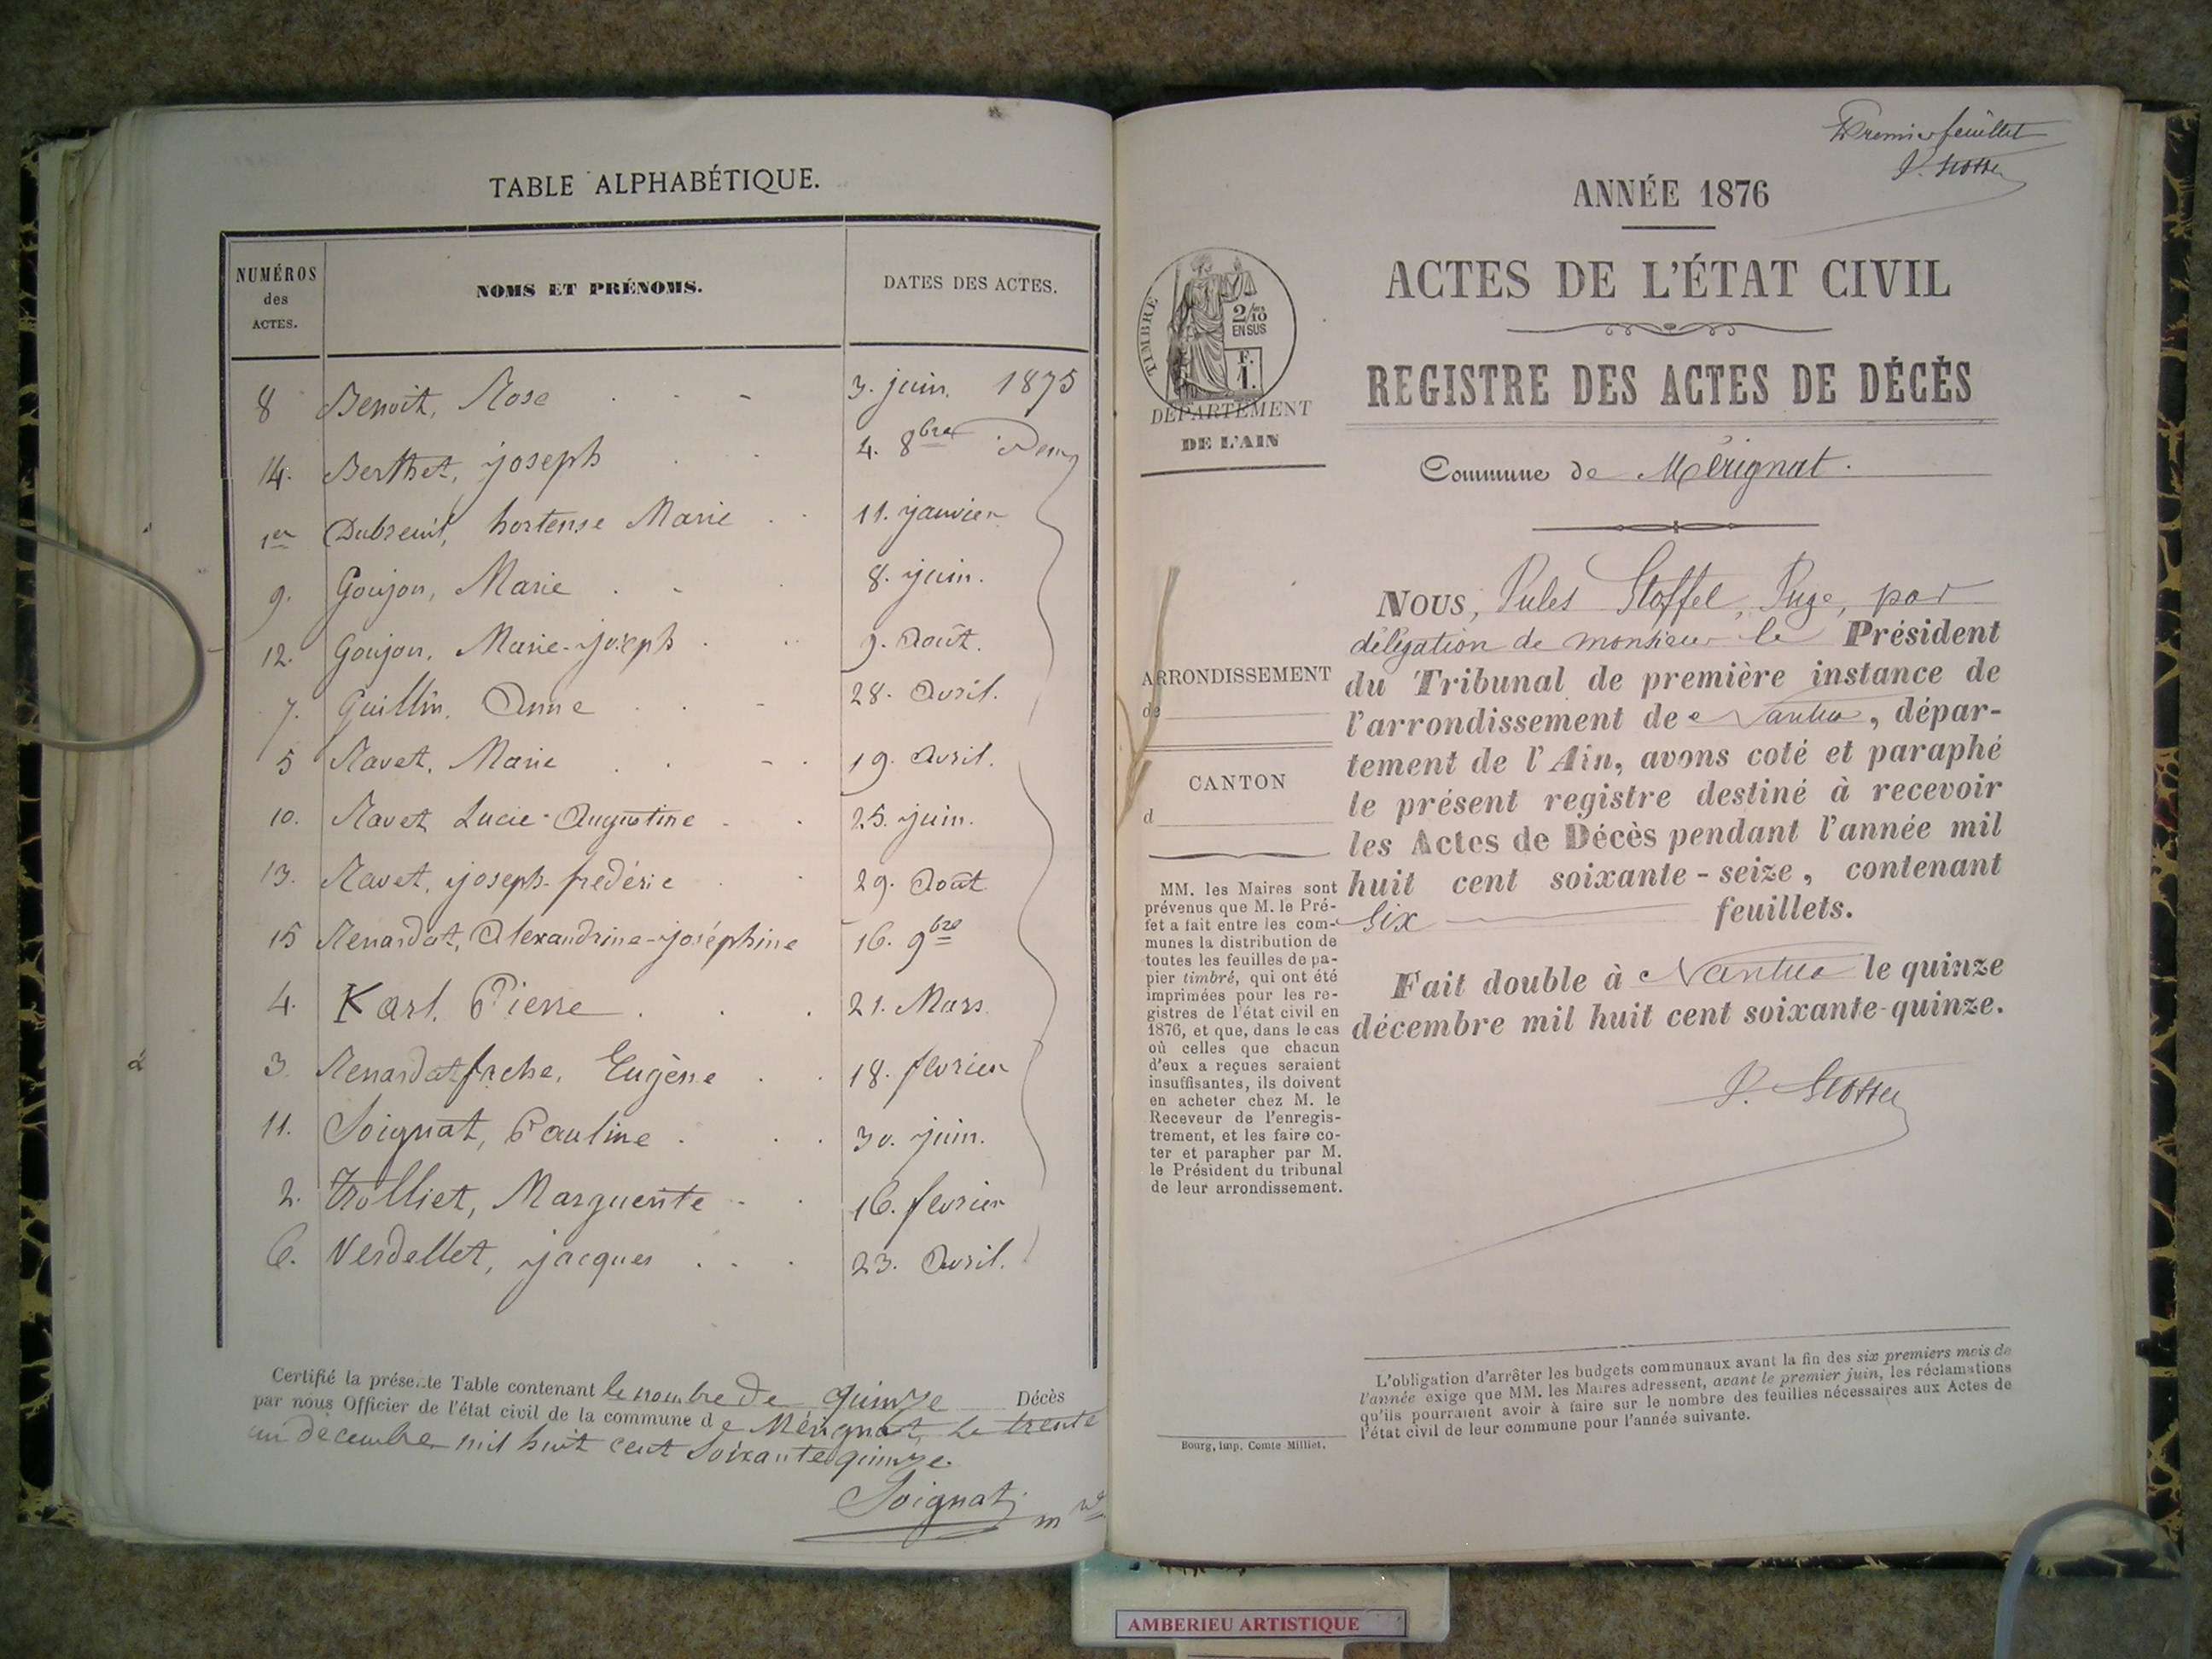 TABLE ALPHABÉTIQUE.
NUMÉROS des ACTES. NOMS ET PRÉNOMS. DATES DES ACTES.
8 Benoit, Rose 3. juin. 1875
14. Berthet, joseph 4. 8bre idem
1er Dubreuil, hortense Marie 11. janvier
9. Goujon, Marie 8. juin.
12. Goujon, Marie-joseph 9. Août.
7. Guillin, Anne 28. Avril.
5 Ravet, Marie 19. Avril.
10. Ravet Lucie-Augustine 25. juin.
13. Ravet, joseph-frédéric 29. Août
15 Renardat, Alexandrine-joséphine 16. 9bre
4. Karl, Pierre 21. Mars
3. Renardat fache, Eugène 18. fevrier
11. Soignat, Pauline 30. juin.
2. Trolliet, Marguerite 16. fevrier
6. Verdellet, jacques 23. Avril.
Certifié la présente Table contenant le nombre de quinze Décès
par nous Officier de l'état civil de la commune de Mérignat, le trente
un décembre mil huit cent soixante quinze.
Soignat
Premier feuillet
J. Stoffel
ANNÉE 1876
ACTES DE L'ÉTAT CIVIL
REGISTRE DES ACTES DE DÉCÈS
TIMBRE
2/10
EN SUS
F.
1.
DÉPARTEMENT
DE L'AIN
Commune de Mérignat.
ARRONDISSEMENT
de
CANTON
d
MM. les Maires sont
prévenus que M. le Pré-
fet a fait entre les com-
munes la distribution de
toutes les feuilles de pa-
pier timbré, qui ont été
imprimées pour les re-
gistres de l'état civil en
1876, et que, dans le cas
où celles que chacun
d'eux a reçues seraient
insuffisantes, ils doivent
en acheter chez M. le
Receveur de l'enregis-
trement, et les faire co-
ter et parapher par M.
le Président du tribunal
de leur arrondissement.
Bourg, imp. Comte-Milliet.
NOUS, Jules Stoffel, Juge, par
délégation de monsieur le Président
du Tribunal de première instance de
l'arrondissement de Nantua, dépar-
tement de l'Ain, avons coté et paraphé
le présent registre destiné à recevoir
les Actes de Décès pendant l'année mil
huit cent soixante-seize, contenant
six feuillets.
Fait double à Nantua le quinze
décembre mil huit cent soixante-quinze.
J. Stoffel
L'obligation d'arrêter les budgets communaux avant la fin des six premiers mois de
l'année exige que MM. les Maires adressent, avant le premier juin, les réclamations
qu'ils pourraient avoir à faire sur le nombre des feuilles nécessaires aux Actes de
l'état civil de leur commune pour l'année suivante.
AMBERIEU ARTISTIQUE